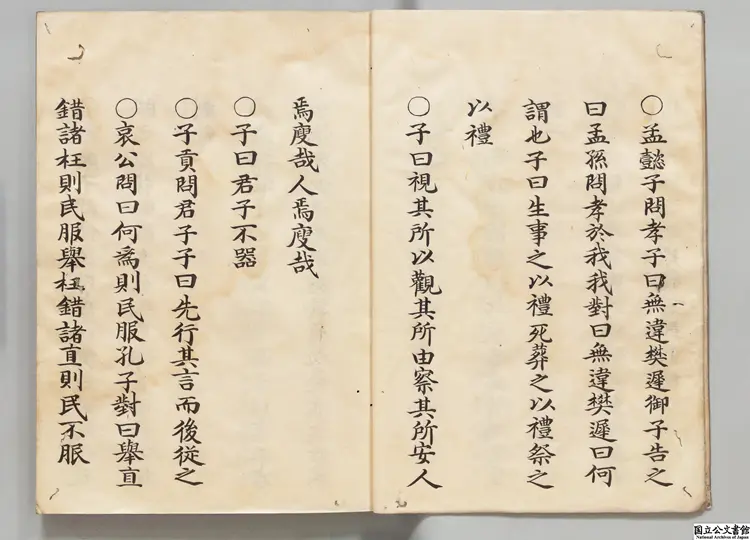 〇孟懿子問孝子曰無違樊遲御子告之
曰孟孫問孝於我我對曰無違樊遲曰何
謂也子曰生事之以禮死葬之以禮祭之
以禮
〇子曰視其所以觀其所由察其所安人
焉廋哉人焉廋哉
〇子曰君子不器
〇子貢問君子子曰先行其言而後従之
〇哀公問曰何爲則民服孔子對曰舉直
錯諸枉則民服舉枉錯諸直則民不服
国立公文書館
National Archives of Japan